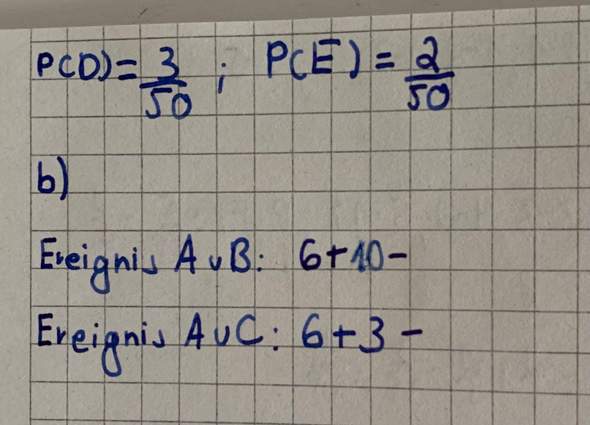 P(D) = 3/50 ; P(E) = 2/50
b)
Ereignis A ∪ B: 6+10-
Ereignis A ∪ C: 6+3-